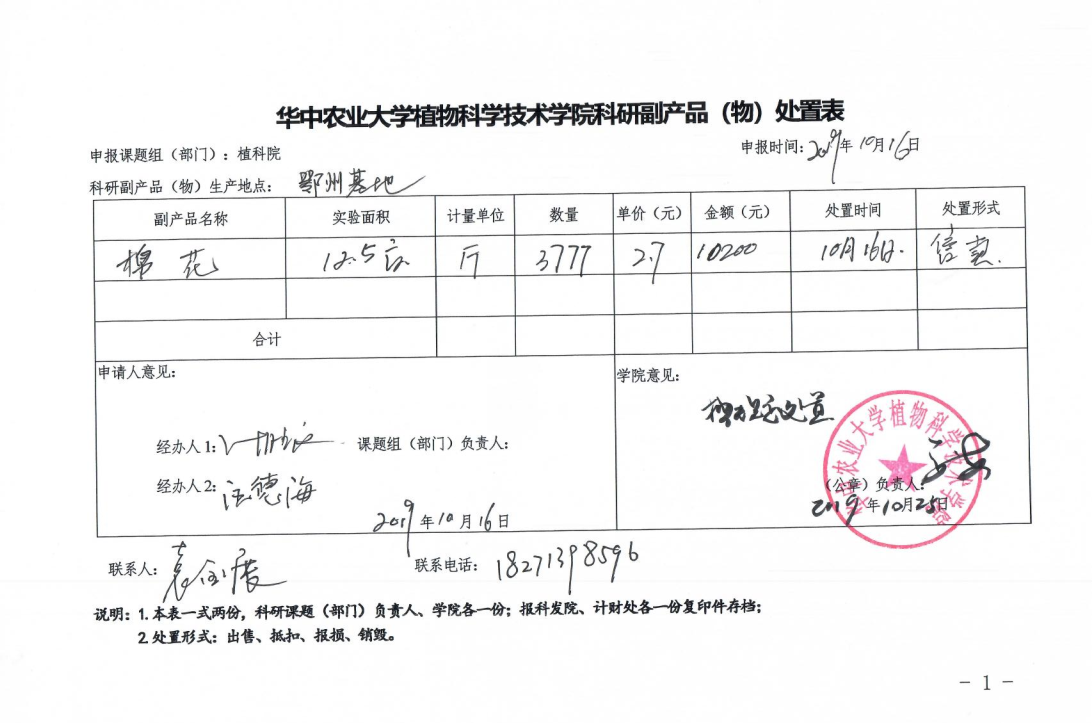 华中农业大学植物科学技术学院科研副产品（物）处置表
申报课题组（部门）：植科院
申报时间：2019年10月16日
科研副产品（物）生产地点： 鄂州基地
副产品名称 实验面积 计量单位 数量 单价（元） 金额（元） 处置时间 处置形式
棉花 12.5亩 斤 3777 2.7 10200 10月16日.
合计
申请人意见：
学院意见：
处置
华中农业大学植物科学技术学院
经办人1： 课题组（部门）负责人：
经办人2：汪德海
（公章）负责人：
2019年10月25日
2019年10月16日
联系人： 联系电话： 18271398596
说明：1.本表一式两份，科研课题（部门）负责人、学院各一份；报科发院、计财处各一份复印件存档；
2.处置形式：出售、抵扣、报损、销毁。
- 1 -